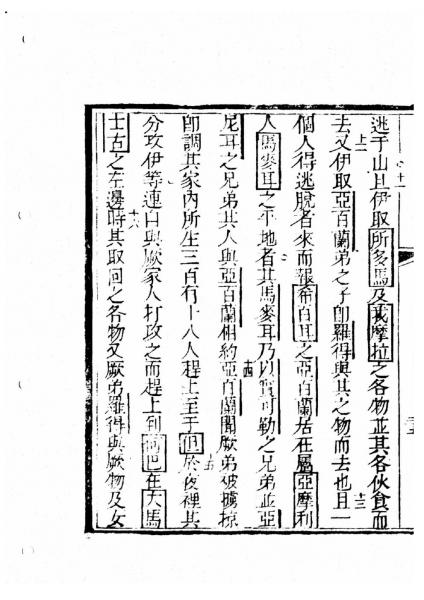 逃于山且伊取所多馬及我摩拉之各物並其各伙食而
去又伊取亞百蘭弟之子卽羅得與其之物而去也且一
個人得逃脫者來而報希百耳之亞百蘭居在屬亞摩利
人馬麥耳之平地者其馬麥耳乃以實可勒之兄弟並亞
尼耳之兄弟其人與亞百蘭相約亞百蘭聞厥弟被擄掠
卽調其家內所生三百有十八人趕上至于但於夜裡其
分攻伊等連自與厥家人打攻之而趕上到何巴在大馬
士古之左邊時其取回之各物又厥弟羅得與厥物及女
十一
十二
十三
十四
十五
十六